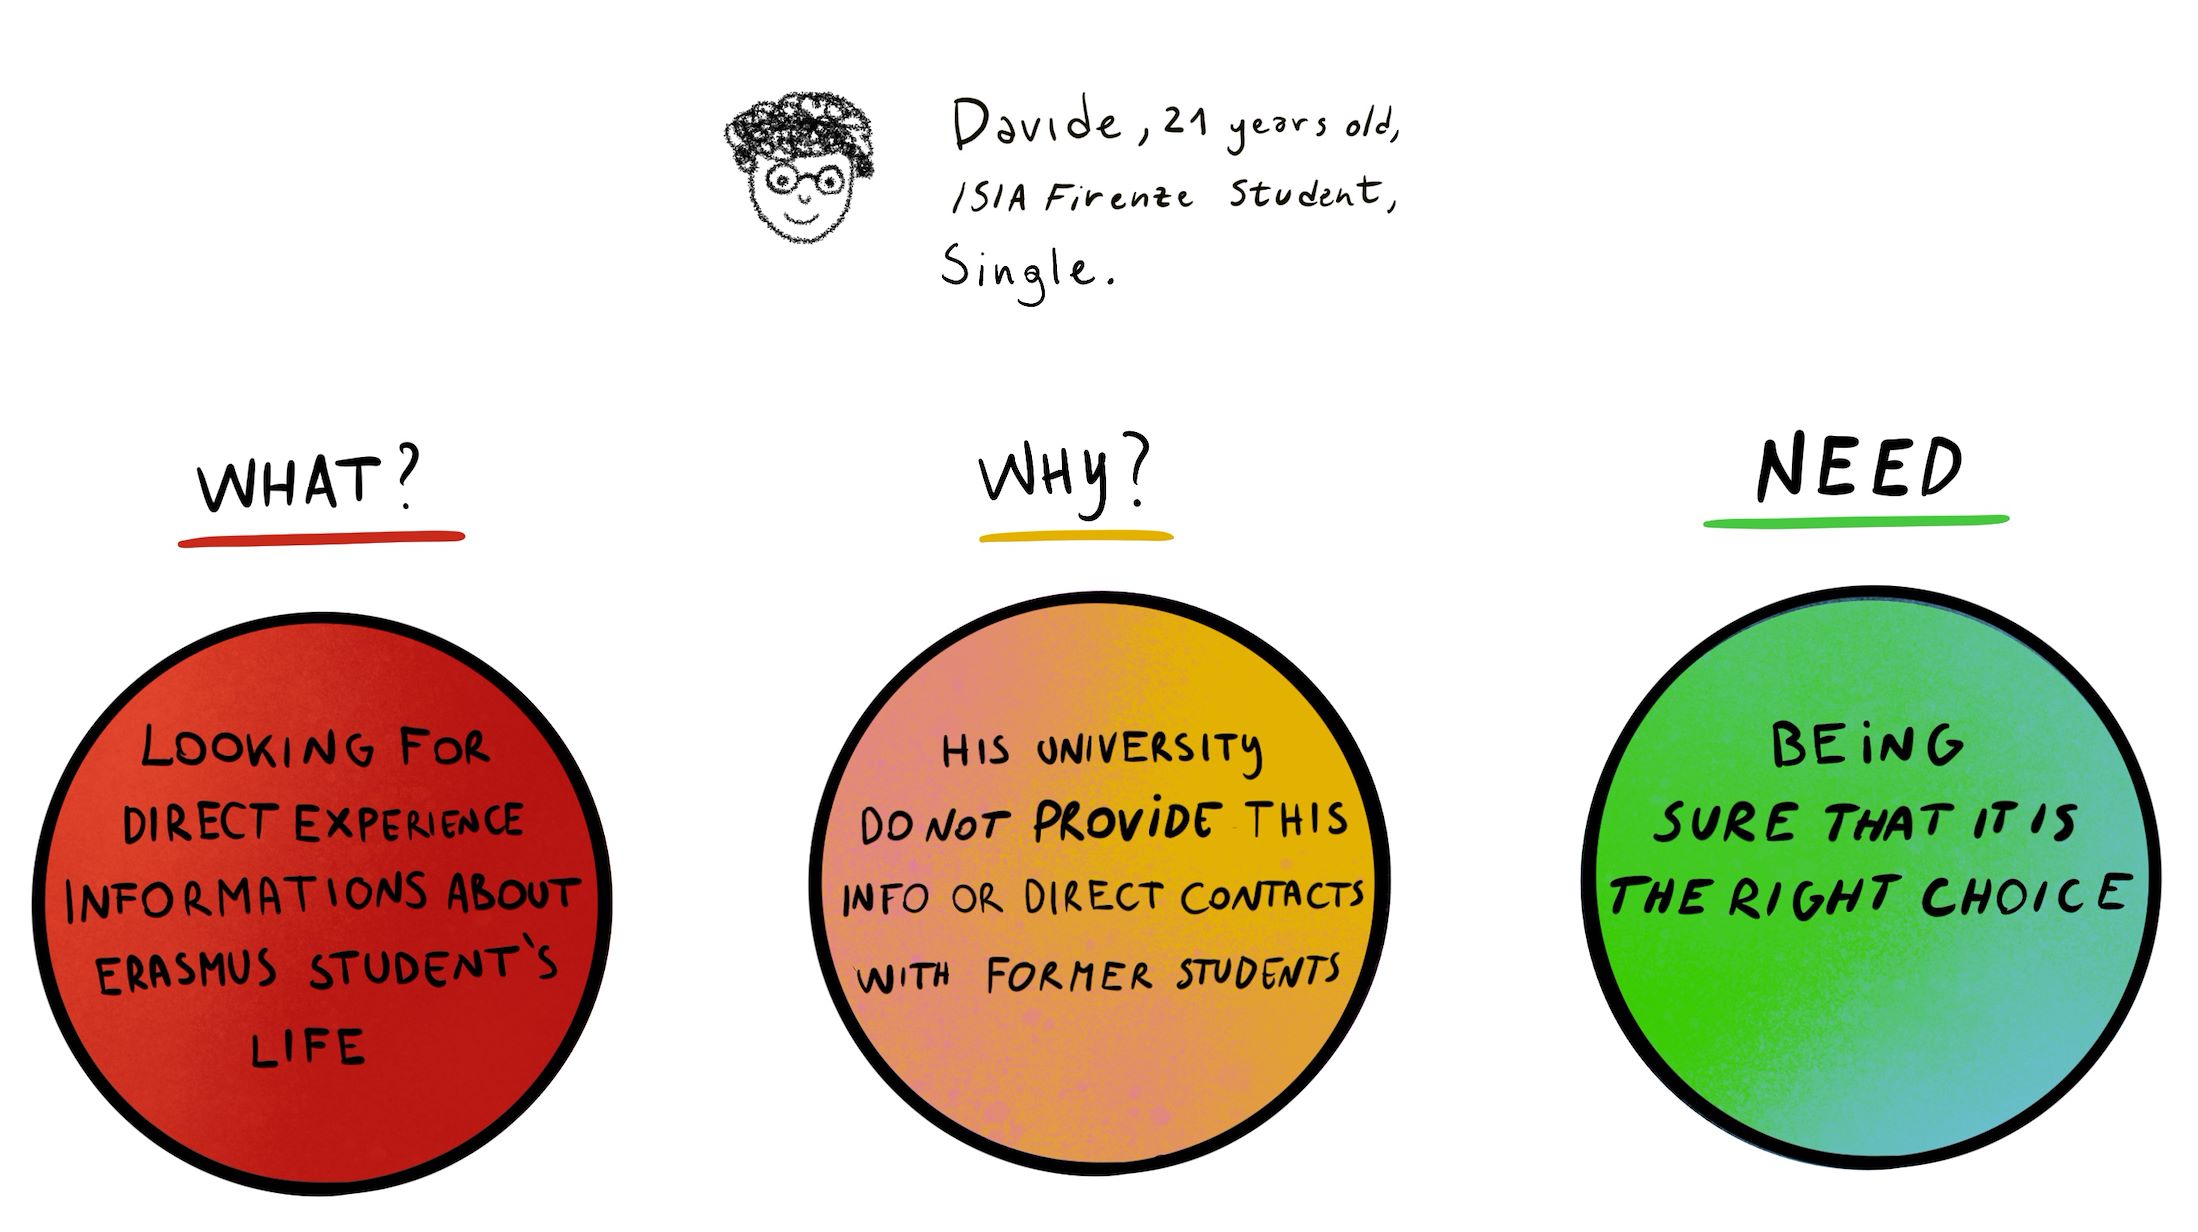 Davide, 21 years old,
ISIA Firenze Student,
Single.
WHAT?
LOOKING FOR
DIRECT EXPERIENCE
INFORMATIONS ABOUT
ERASMUS STUDENT'S
LIFE
WHY?
HIS UNIVERSITY
DO NOT PROVIDE THIS
INFO OR DIRECT CONTACTS
WITH FORMER STUDENTS
NEED
BEING
SURE THAT IT IS
THE RIGHT CHOICE